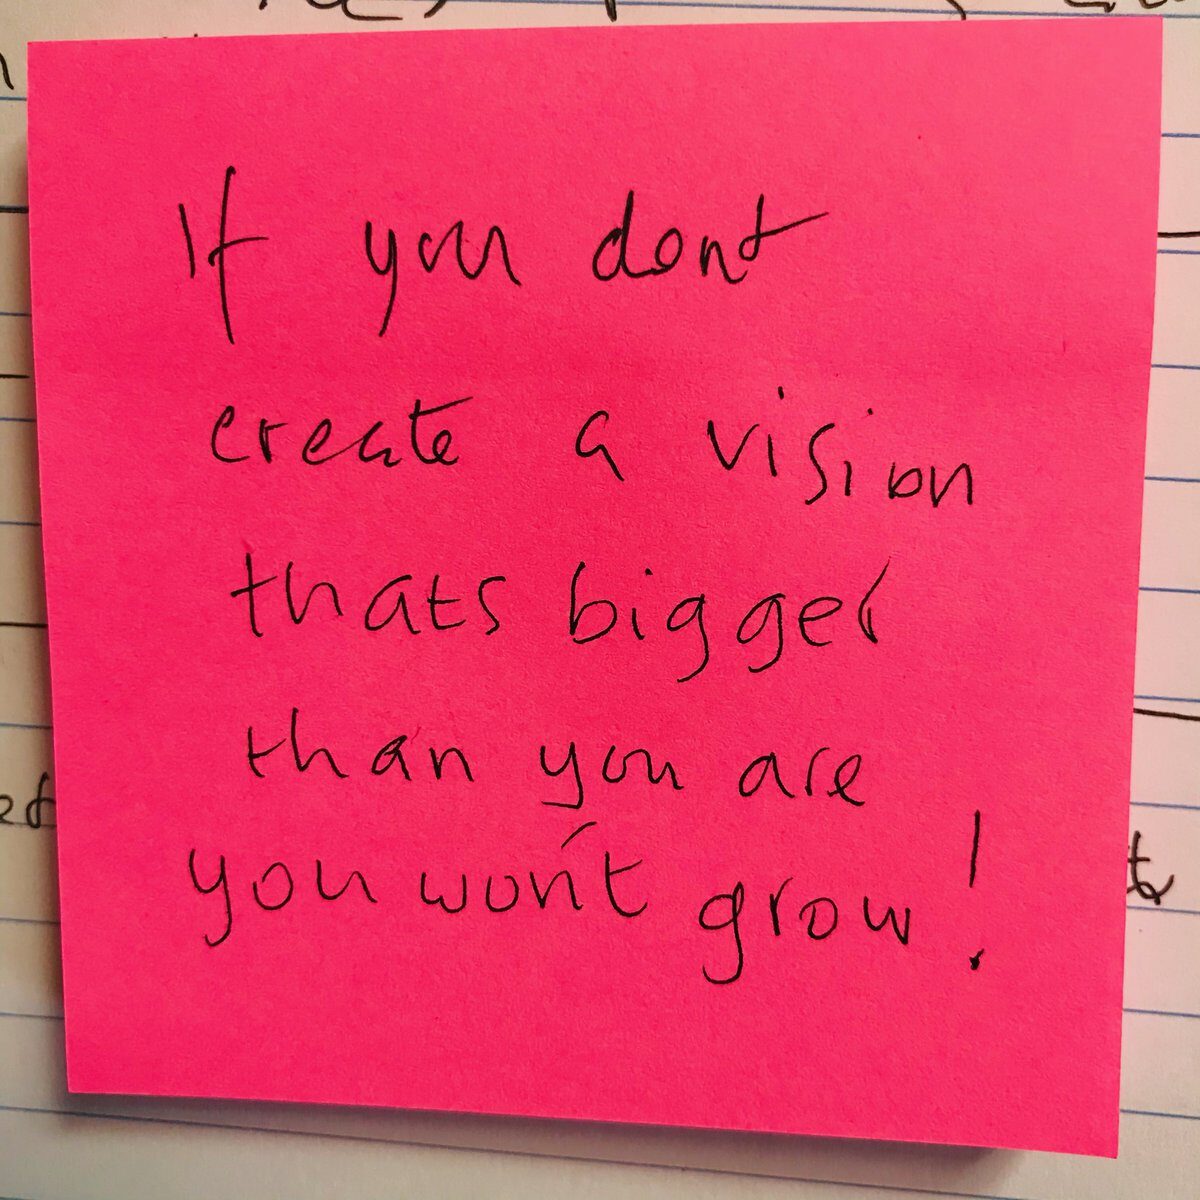 If you dont
create a vision
thats bigger
than you are
you won't grow!